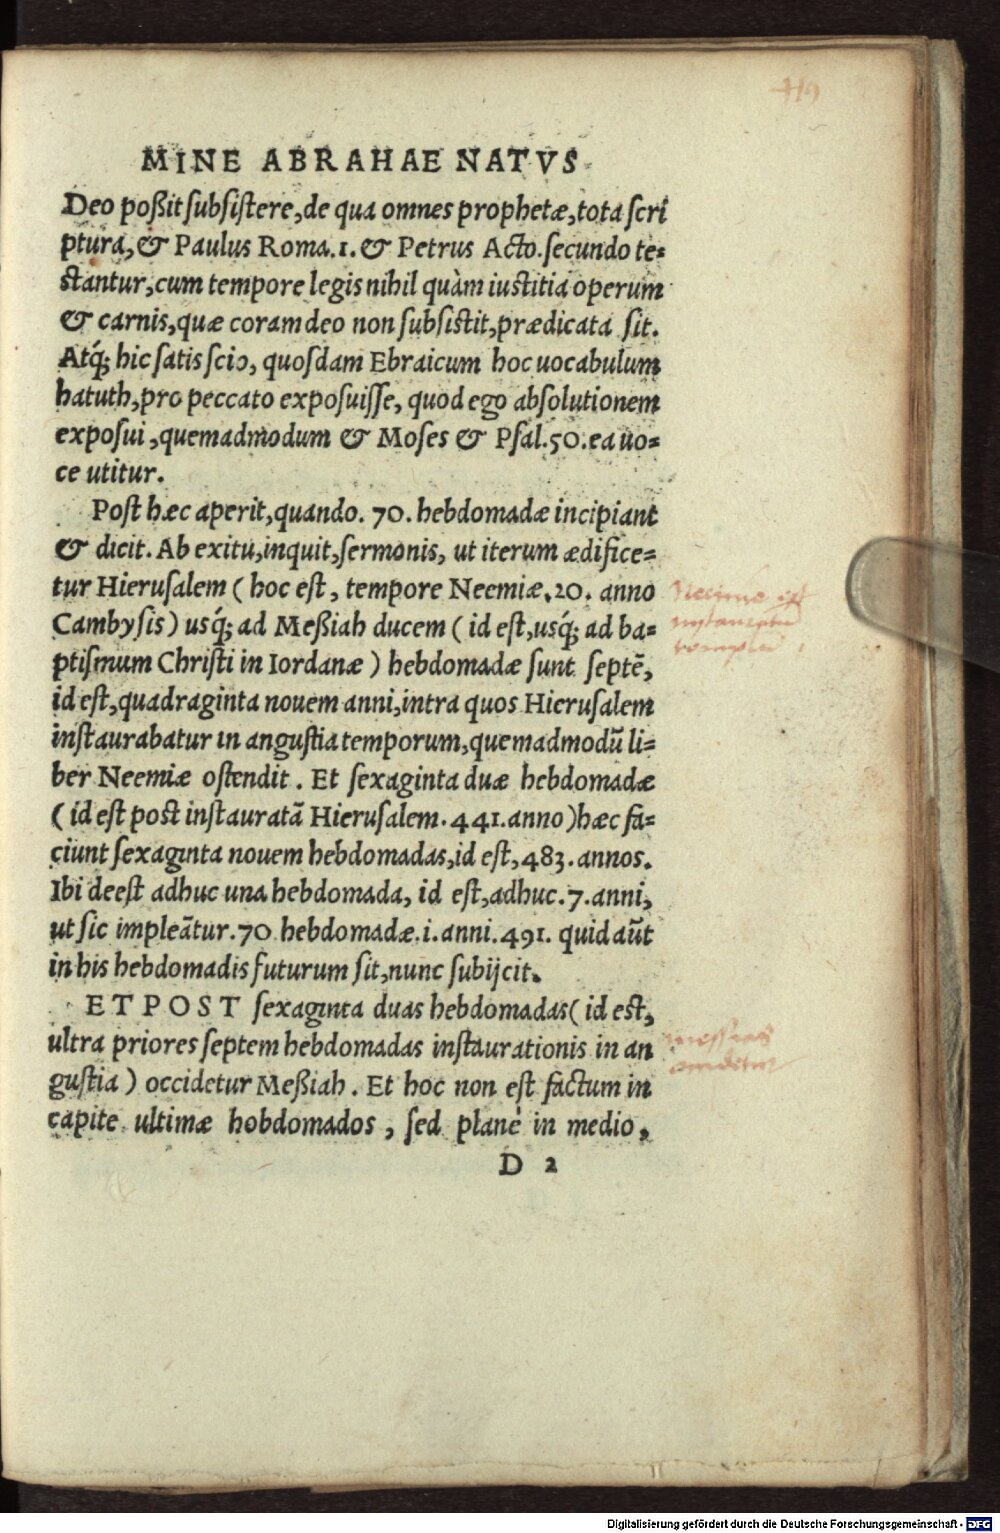 MINE ABRAHAE NATVS
Deo poßit subsistere, de qua omnes prophetæ, tota scri
ptura, & Paulus Roma.1. & Petrus Acto. secundo te=
stantur, cum tempore legis nihil quàm iustitia operum
& carnis, quæ coram deo non subsistit, prædicata sit.
Atq́; hic satis scio, quosdam Ebraicum hoc uocabulum
hatuth, pro peccato exposuisse, quod ego absolutionem
exposui, quemadmodum & Moses & Psal.50. ea uo=
ce utitur.
Post hæc aperit, quando. 70. hebdomadæ incipiant
& dicit. Ab exitu, inquit, sermonis, ut iterum ædifice=
tur Hierusalem ( hoc est, tempore Neemiæ. 20. anno
Cambysis ) usq́; ad Meßiah ducem ( id est, usq́; ad ba=
ptismum Christi in Iordanæ ) hebdomadæ sunt septē,
id est, quadraginta nouem anni, intra quos Hierusalem
instaurabatur in angustia temporum, quemadmodū li=
ber Neemiæ ostendit. Et sexaginta duæ hebdomadæ
( id est post instauratā Hierusalem. 441. anno ) hæc fa=
ciunt sexaginta nouem hebdomadas, id est, 483. annos.
Ibi deest adhuc una hebdomada, id est, adhuc. 7. anni,
ut sic impleātur. 70 hebdomadæ. i. anni. 491. quid aūt
in his hebdomadis futurum sit, nunc subijcit.
ET POST sexaginta duas hebdomadas ( id est,
ultra priores septem hebdomadas instaurationis in an
gustia ) occidetur Meßiah. Et hoc non est factum in
capite ultimæ hobdomados, sed planè in medio,
D 2
Digitalisierung gefördert durch die Deutsche Forschungsgemeinschaft - DFG